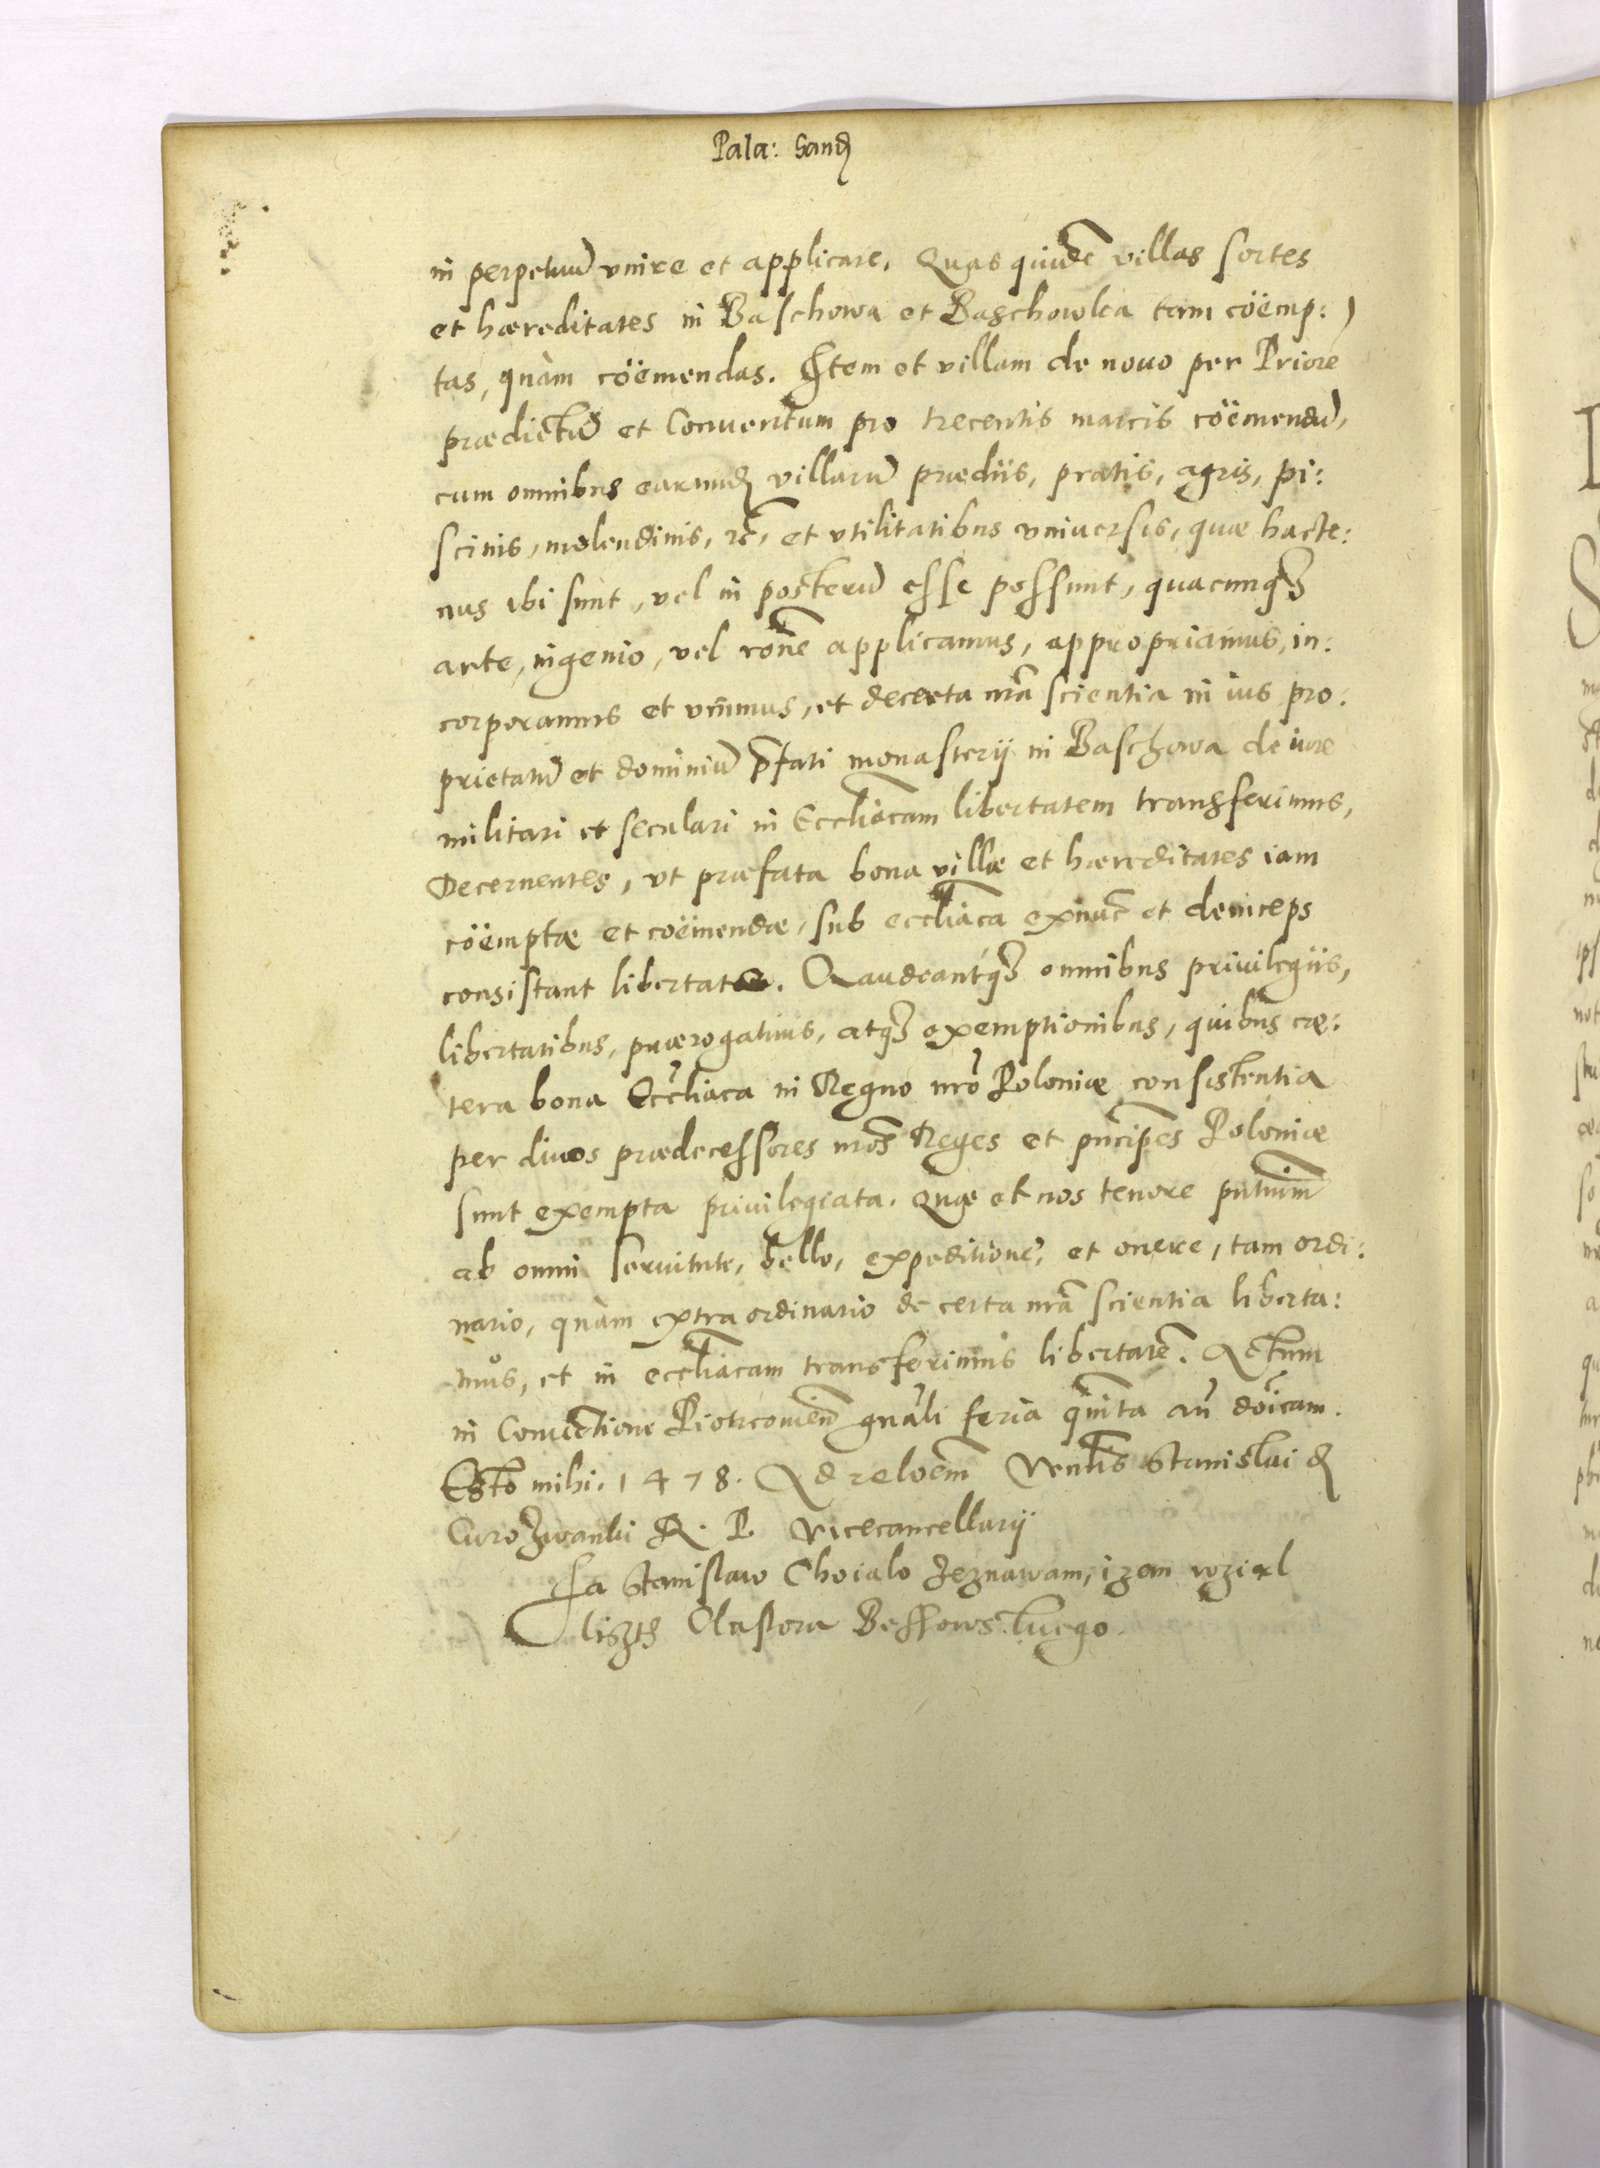 Pala: Sand
in perpetuũ vnire et applicare. Quas quidẽ villas sortes
et hæreditates in Baschowa et Baschowka tam cöemp:
tas, quàm cöemendas. Item et villam de nouo per Priorẽ
prædictũ et Conuentum pro trecentis marcis cöemendã,
cum omnibus earund villarũ prædiis, pratis, agris, pi:
scinis, molendinis, &c̃, et vtilitatibus vniuersis, quæ hacte:
nus ibi sunt, vel in posterũ esse possunt, quacunq₃
arte, ingenio, vel rõne applicamus, appropriamus, in:
corporamus et vnimus, et de certa nrã scientia in ius pro:
prietatũ et dominiũ p̃fati monasterij in Baschowa de iure
militari et seculari in Eccliãcam libertatem transferimus,
Decernentes, vt præfata bona villæ et hæreditates iam
cöemptæ et cöemendæ, sub eccliãca exnũc et deinceps
consistant libertate. Gaudeantq₃ omnibus priuilegiis,
libertatibus, prærogatiuis, atq₃ exemptionibus, quibus cæ:
tera bona Eccliãca in Regno nrõ Poloniæ consistentia
per diuos prædecessores nrõs Reges et pñcipes Poloniæ
sunt exempta priuilegiata. Quæ et nos tenore pñtium̃
ab omni seruitute, bello, expeditione, et onere, tam ordi:
nario, quàm extraordinario de certa nrã scientia liberta:
mus, et in eccliãcam transferimus libertatẽ. Actum
in Conuẽtione Piotrcouieñ gnãli feria quinta añ doĩcam
Esto mihi. 1478. Ad reloẽm Venlis Stanislai d
Curozwanki R. P. Vicecancellarij
Ja Stanislaw Choialo zeznawam, izem wzial
liszth Clastora Bessowskiego.